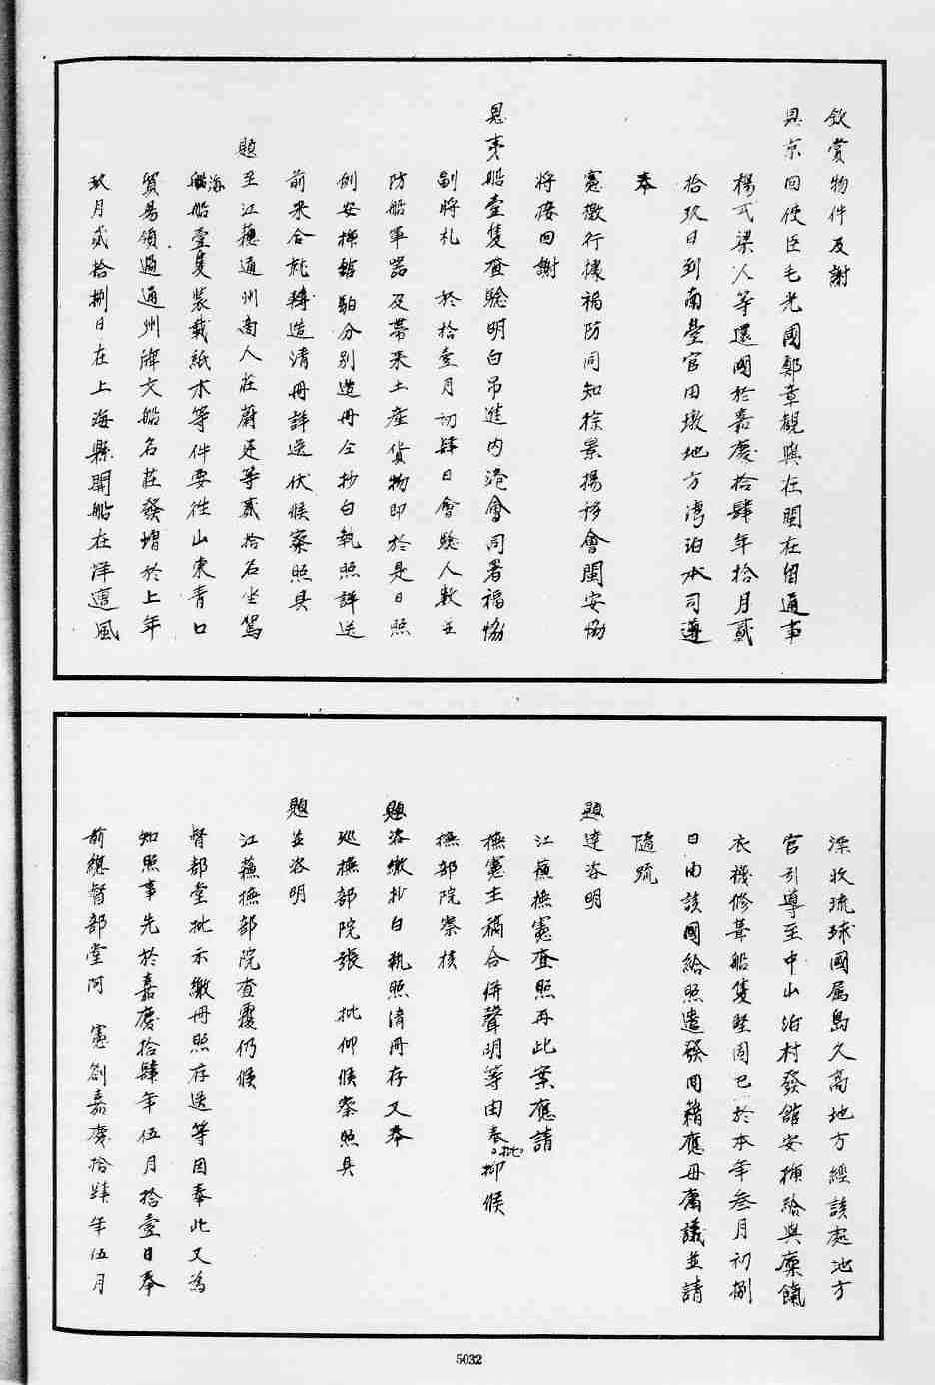 欽賞物件及謝
恩京回使臣毛光國鄭章觀與在閩在留通事
楊弌梁人等還國於嘉慶拾肆年拾月貳
拾玖日到南臺官田墩地方灣泊本司遵
奉
憲檄行據福防同知徐景揚移會閩安協
將接回謝
恩夷船壹隻查驗明白吊進内港會同署福協
副將札　於拾壹月初肆日會驗人數並
防船軍器及帶来土產貨物即於是日照
例安插館驛分別造册仝抄白執照詳送
前来合就轉造清冊詳送伏候察照具
題至江蘓通州商人莊蔚廷等貳拾名坐駕
海船壹隻装載紙木等件要徃山東青口
貿易領過通州牌文船名莊發增於上年
玖月貳拾捌日在上海縣開船在洋遭風
漂收琉球國属島久高地方經該處地方
官引導至中山泊村發館安插給與廩餼
衣襪修葺船隻堅固已於本年叁月初捌
日由該國給照遣發回籍應毋庸議並請
隨疏
題達咨明
江蘓撫憲查照再此案應請
撫憲主稿合併聲明等由奉批抑候
撫部院察核
題咨繳抄白執照清冊存又奉
巡撫部院張　批仰候察照具
題並咨明
江蘓撫部院查覆仍候
督部堂批示繳冊照存送等因奉此又為
知照事先於嘉慶拾肆年伍月拾壹日奉
前總督部堂阿　憲劄嘉慶拾肆年伍月
5032